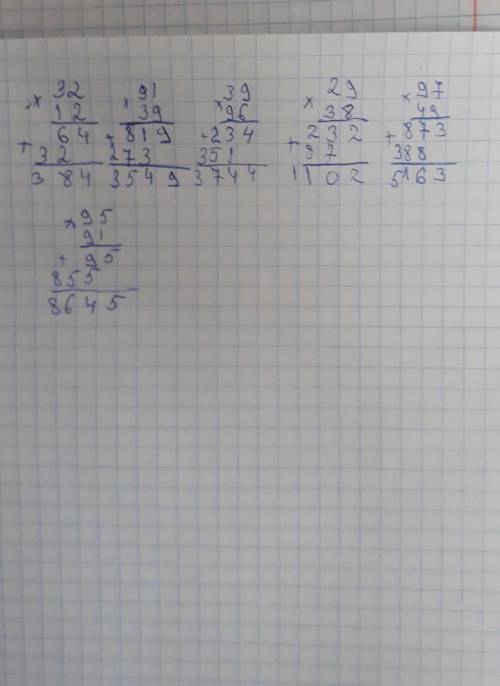 × 32
12
64
+ 32
384
× 91
39
+ 819
273
3549
× 39
96
+ 234
351
3744
× 29
38
232
+ 87
1102
× 97
49
+ 873
388
5163
× 95
91
+ 95
855
8645